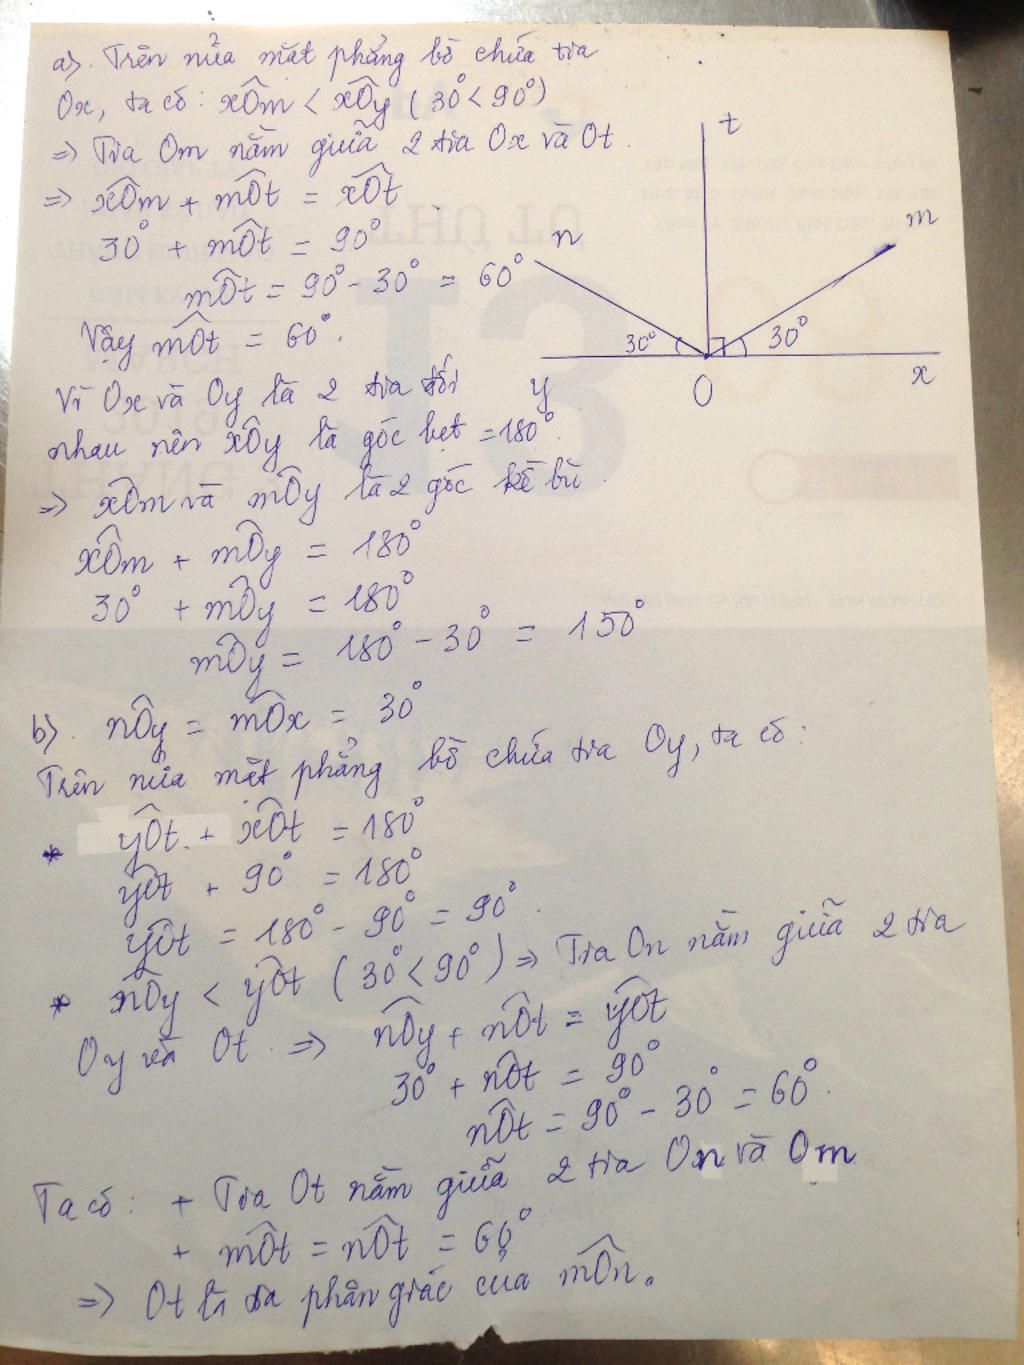 a). Trên nửa mặt phẳng bờ chứa tia
Ox, ta có: xÔm < xÔy (30° < 90°)
=> Tia Om nằm giữa 2 tia Ox và Ot.
=> xÔm + mÔt = xÔt
30° + mÔt = 90°
mÔt = 90° - 30° = 60°
Vậy mÔt = 60°.
Vì Ox và Oy là 2 tia đối
nhau nên xÔy là góc bẹt = 180°.
=> xÔm và mÔy là 2 góc kề bù.
xÔm + mÔy = 180°
30° + mÔy = 180°
mÔy = 180° - 30° = 150°
t
n
m
30°
30°
y
O
x
b). nÔy = mÔx = 30°
Trên nửa mặt phẳng bờ chứa tia Oy, ta có:
* yÔt + xÔt = 180°
yÔt + 90° = 180°
yÔt = 180° - 90° = 90°.
* nÔy < yÔt (30° < 90°) => Tia On nằm giữa 2 tia
Oy và Ot => nÔy + nÔt = yÔt
30° + nÔt = 90°
nÔt = 90° - 30° = 60°.
Ta có: + Tia Ot nằm giữa 2 tia On và Om
+ mÔt = nÔt = 60°
=> Ot là tia phân giác của mÔn.